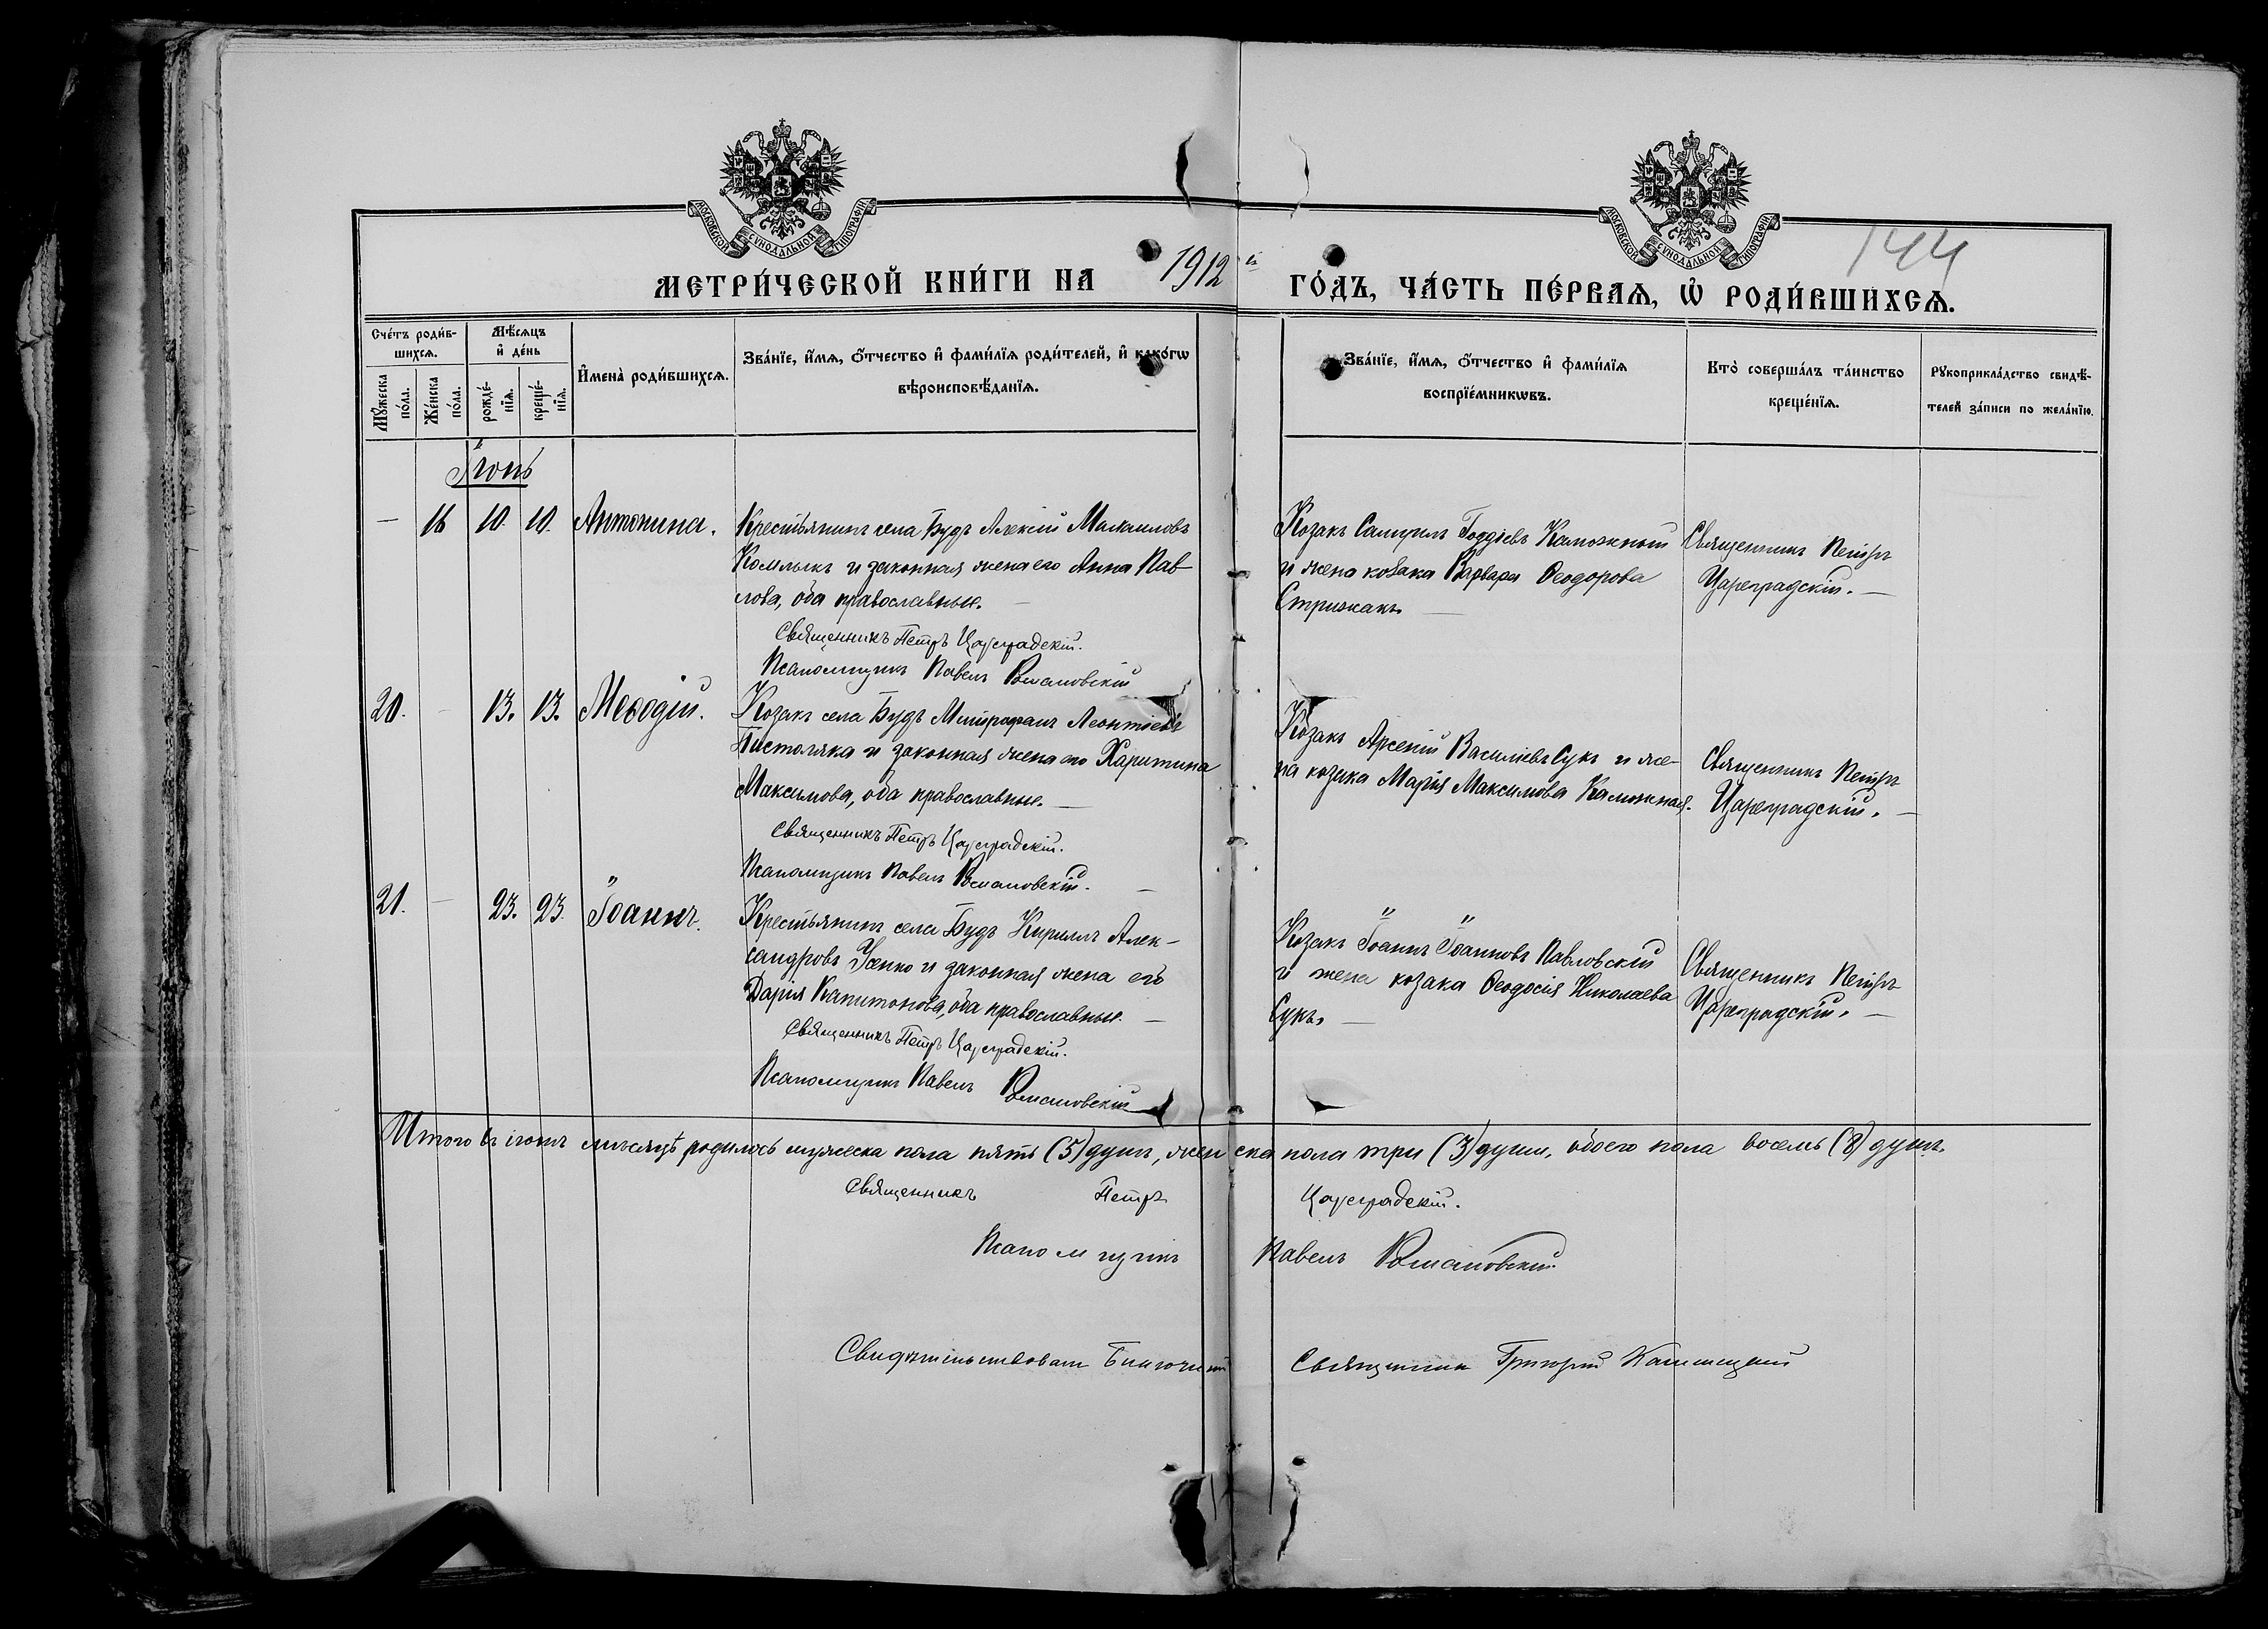 МОСКОВСКОЙ СѴНОДАЛЬНОЙ ТИПОГРАФІИ
МОСКОВСКОЙ СѴНОДАЛЬНОЙ ТИПОГРАФІИ
144
МЕТРИ́ЧЕСКОЙ КНИ́ГИ НА 1912 й ГО́ДЪ, ЧА́СТЬ ПЕ́РВАѦ, Ѡ҆ РОДИ́ВШИХСѦ.
Сче́тъ роди́в-
шихсѧ.
Мѣ́сѧцъ
и҆ де́нь
И҆мена̀ роди́вшихсѧ.
Зва́нїе, и҆́мѧ, ѻ҆́тчество и҆ фами́лїѧ роди́телей, и҆ како́гѡ
вѣроисповѣ́данїѧ.
Зва́нїе, и҆́мѧ, ѻ҆́тчество и҆ фами́лїѧ
воспрїе́мникѡвъ.
Кто̀ соверша́лъ та́инство
креще́нїѧ.
Рꙋкоприкла́дство свидѣ́-
телей за́писи по жела́нїю.
Мꙋ́жеска
по́ла.
Же́нска
по́ла.
рожде́-
нїѧ.
креще́-
нїѧ.
Іюнь
— 16 10. 10. Антонина.
Крестьянинъ села Будъ Алексій Михаиловъ
и законная жена его Анна Пав-
лова, оба православные. —
Священникъ Петръ Цареградскій.
Псаломщикъ Павелъ Романовскій
Козакъ Самуилъ Каложный
и жена козака Варвара Ѳеодорова
Стрижакъ. —
Священникъ Петръ
Цареградскій. —
20. — 13. 13. Меѳодій.
Козакъ села Будъ Митрофанъ Леонтіевъ
Пистоляка и законная жена его Харитина
Максимова, оба православные. —
Священникъ Петръ Цареградскій.
Псаломщикъ Павелъ Романовскій. —
Козакъ Арсеній Василіевъ Сукъ и же-
на козака Марія Максимова Каложная.
Священникъ Петръ
Цареградскій. —
21. — 23. 23. Іоаннъ.
Крестьянинъ села Будъ Кириллъ Алек-
сандровъ Усенко и законная жена его
Дарія Капитонова, оба православные. —
Священникъ Петръ Цареградскій.
Псаломщикъ Павелъ Романовскій
Козакъ Іоаннъ Іоанновъ Павловскій
и жена козака Ѳеодосія Николаева
Сукъ. —
Священникъ Петръ
Цареградскій. —
Итого въ іюнѣ мѣсяцѣ родилось мужеска пола пять (5) душъ, женска пола три (3) души, обоего пола восемь (8) душъ.
Священникъ Петръ Цареградскій.
Псаломщикъ Павелъ Романовскій
Свидѣтельствовалъ Благочинный Священникъ Григорій